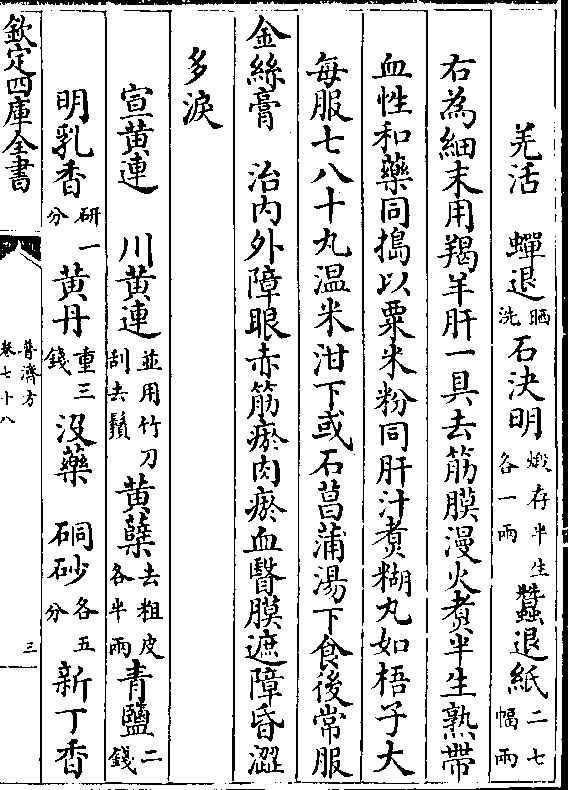 羌活 蟬退晒洗石決明煅存半生各一兩蠶退紙二七幅兩
右為細末用羯羊肝一具去筋膜漫火煮半生熟帶
血性和藥同搗以粟米粉同肝汁煮糊丸如梧子大
每服七八十丸温米泔下或石菖蒲湯下食後常服
金絲膏 治内外障眼赤筋瘀肉瘀血瞖膜遮障昏澀
多淚
宣黄連 川黄連並用竹刀刮去鬚黄蘗去粗皮各半兩青鹽二錢
明乳香研一分黄丹重三錢没藥 硇砂各五分新丁香
欽定四庫全書
普濟方
卷七十八
三